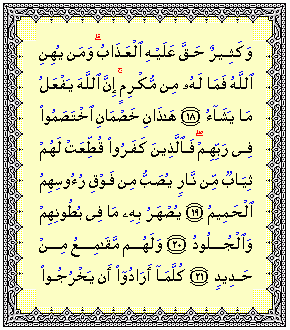 وَكَثِيرٌ حَقَّ عَلَيْهِ ٱلْعَذَابُ ۗ وَمَن يُهِنِ
ٱللَّهُ فَمَا لَهُۥ مِن مُّكْرِمٍ ۚ إِنَّ ٱللَّهَ يَفْعَلُ
مَا يَشَآءُ ﴿١٨﴾ هَٰذَانِ خَصْمَانِ ٱخْتَصَمُوا۟
فِى رَبِّهِمْ ۖ فَٱلَّذِينَ كَفَرُوا۟ قُطِّعَتْ لَهُمْ
ثِيَابٌ مِّن نَّارٍ يُصَبُّ مِن فَوْقِ رُءُوسِهِمُ
ٱلْحَمِيمُ ﴿١٩﴾ يُصْهَرُ بِهِۦ مَا فِى بُطُونِهِمْ
وَٱلْجُلُودُ ﴿٢٠﴾ وَلَهُم مَّقَٰمِعُ مِنْ
حَدِيدٍ ﴿٢١﴾ كُلَّمَآ أَرَادُوٓا۟ أَن يَخْرُجُوا۟